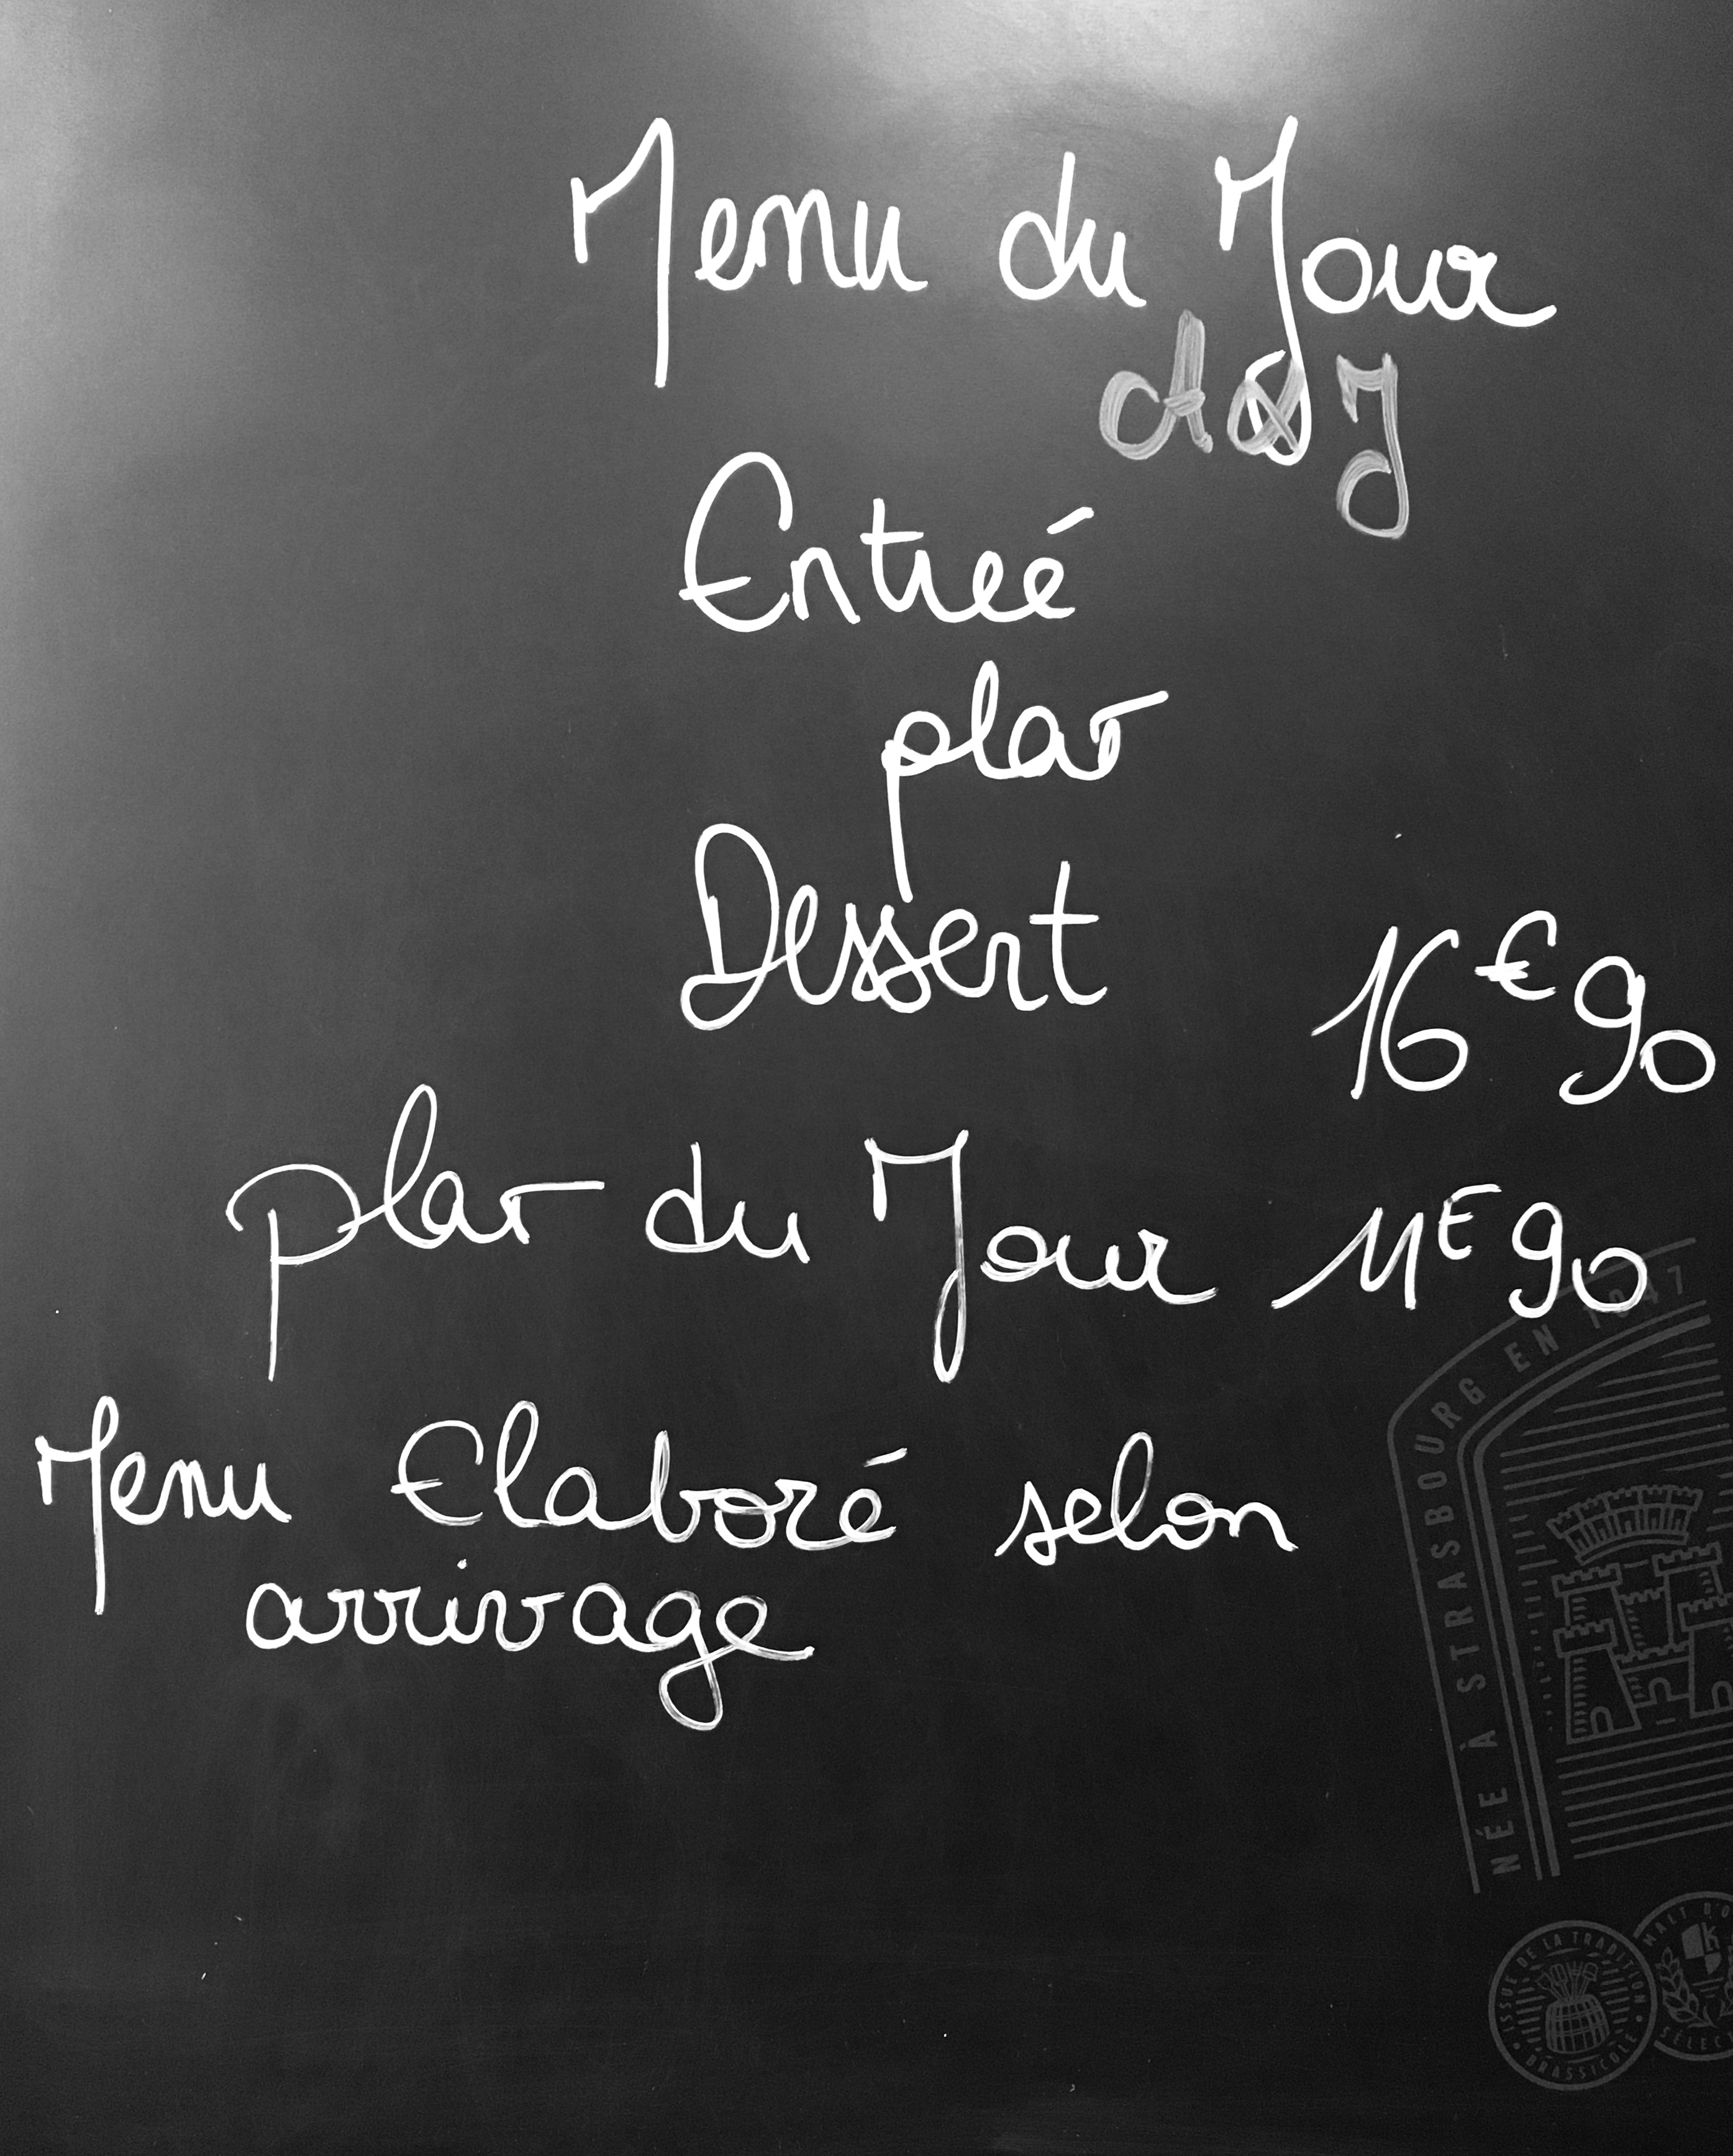 Menu du Jour
A&J
Entreé
plat
Dessert
16€90
plat du Jour 11€90
Menu Elaboré selon
arrivage
NÉE À STRASBOURG EN 1847
ISSUE DE LA TRADITION BRASSICOLE
MALT D'O
SÉLEC